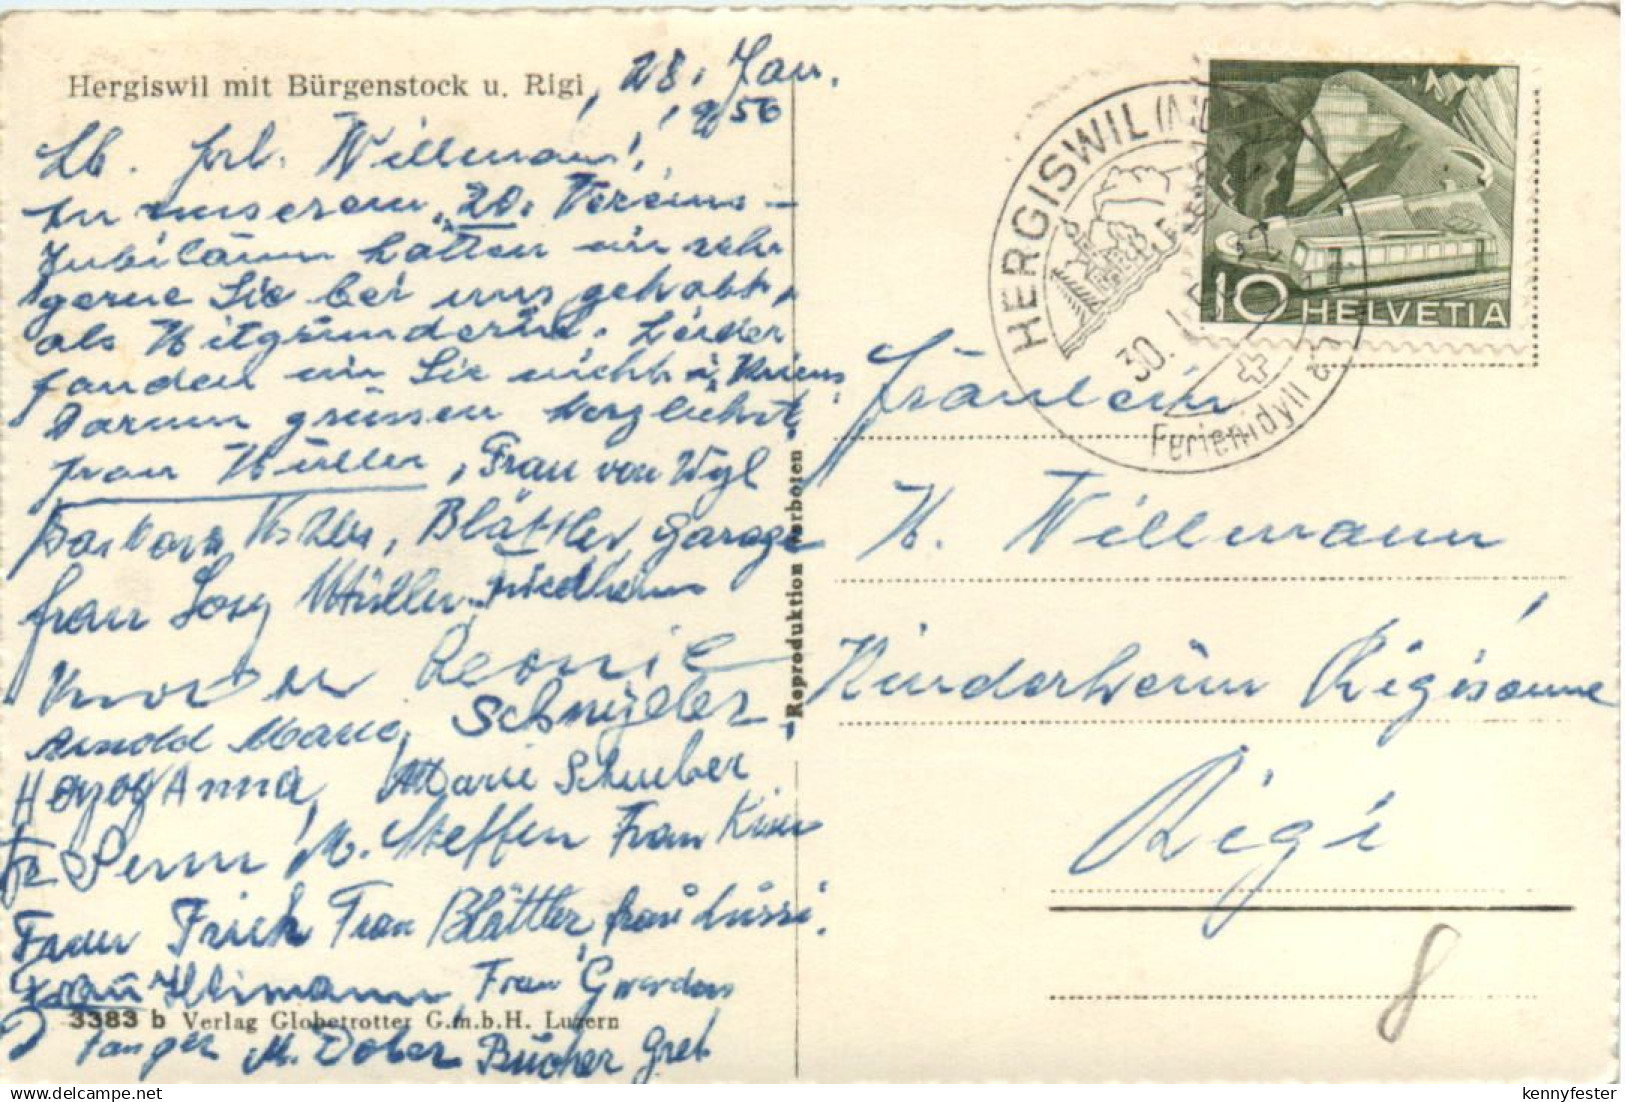 Hergiswil mit Bürgenstock u. Rigi, 28. Jan.
1956
Lb. Frl. Willmann!
An unserem 20. Vereins-
Jubiläum hätten wir sehr
gerne Sie bei uns gehabt,
als Mitgründerin. Leider
fanden wir Sie nicht i. Kriens
Darum grüssen herzlichst
Frau Müller, Frau von Wyl
Barbara Blättler, Garage
Frau Josy Müller, Friedheim
Leonie
Arnold Marie, Schnyder
Herzog Anna, Marie Schuber
M. Steffen Frau
Frau Frick Frau Blättler, Frau Lussi.
Frau Frau
3383 b Verlag Globetrotter G.m.b.H. Luzern
M. Dober Bucher Gret
Reproduktion verboten
HERGISWIL (NID
30. I. 5
Ferienidyll a.
10 HELVETIA
Fräulein
H. Willmann
Kinderheim Rigisonne
Rigi
8
kennyfester